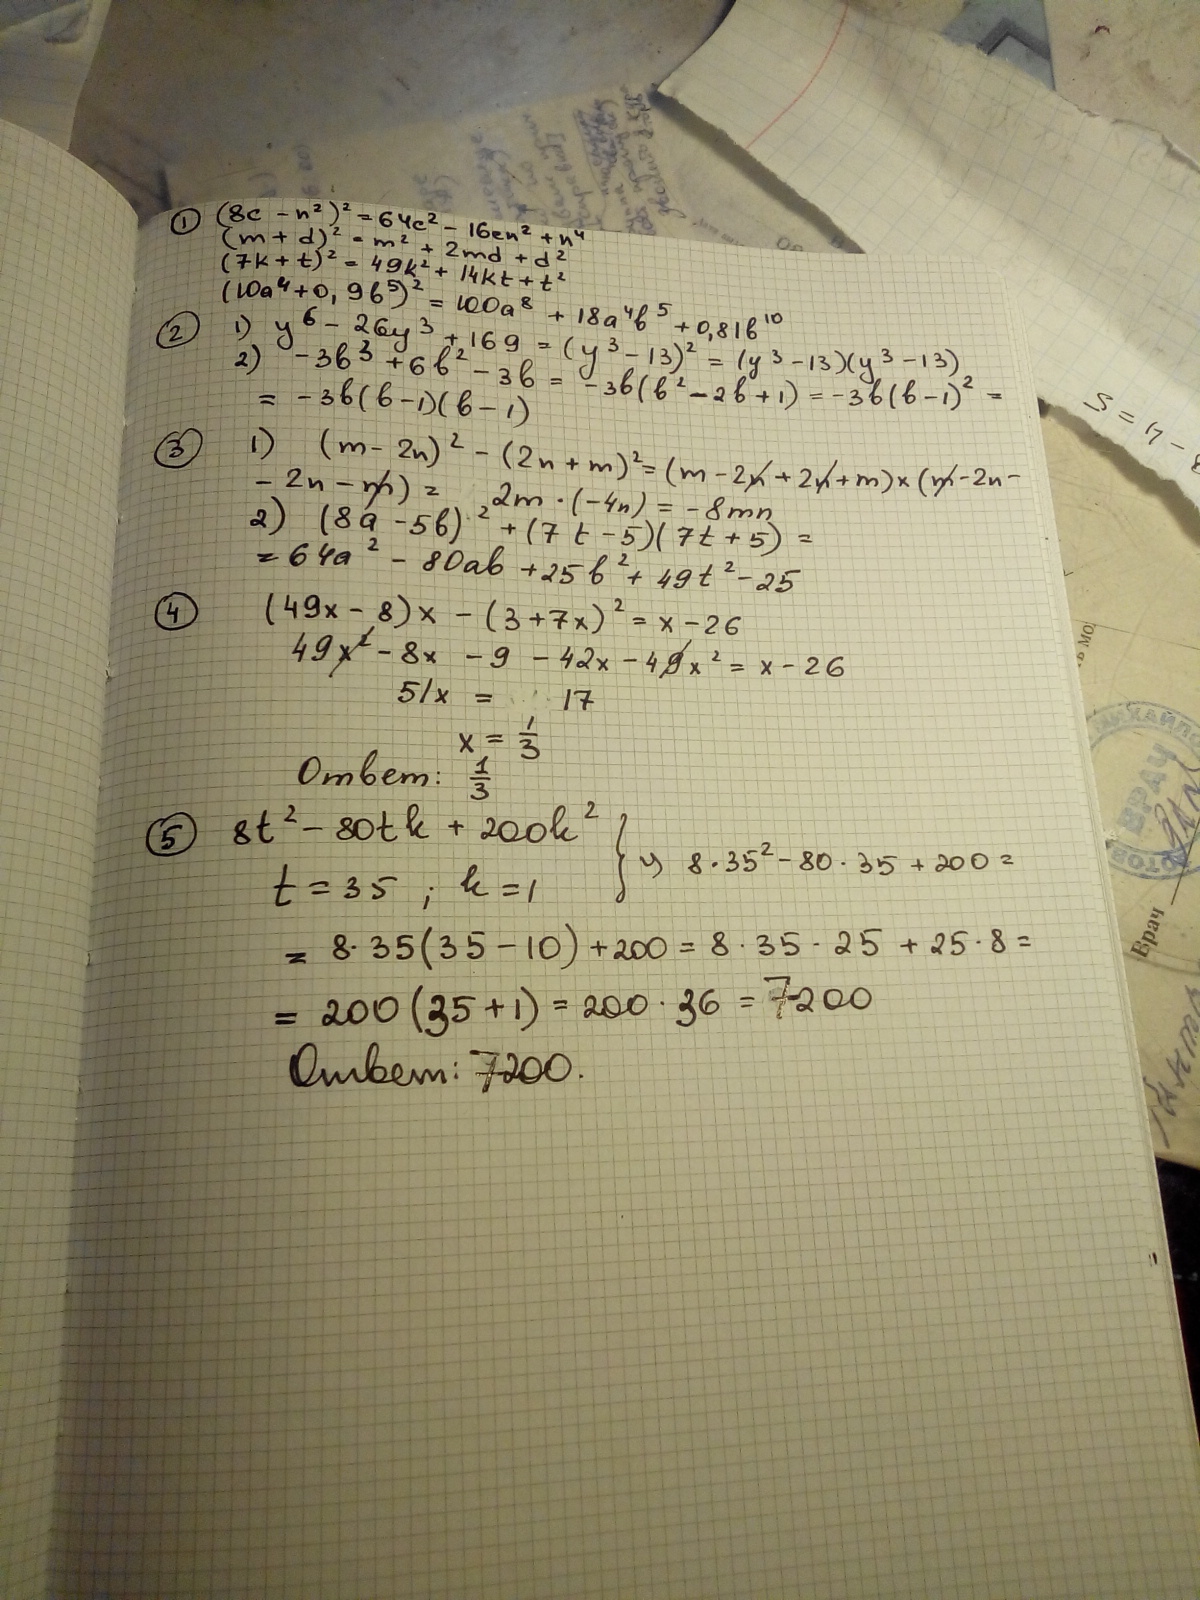 ① (8c - n²)² = 64c² - 16cn² + n⁴
(m + d)² = m² + 2md + d²
(7k + t)² = 49k² + 14kt + t²
(10a⁴ + 0,9b⁵)² = 100a⁸ + 18a⁴b⁵ + 0,81b¹⁰
② 1) y⁶ - 26y³ + 169 = (y³ - 13)² = (y³ - 13)(y³ - 13)
2) -3b³ + 6b² - 3b = -3b(b² - 2b + 1) = -3b(b - 1)² =
= -3b(b - 1)(b - 1)
③ 1) (m - 2n)² - (2n + m)² = (m - 2n + 2n + m) × (m - 2n -
- 2n - m) = 2m · (-4n) = -8mn
2) (8a - 5b)² + (7t - 5)(7t + 5) =
= 64a² - 80ab + 25b² + 49t² - 25
④ (49x - 8)x - (3 + 7x)² = x - 26
49x² - 8x - 9 - 42x - 49x² = x - 26
51x = 17
x = 1/3
Ответ: 1/3
⑤ 8t² - 80tk + 200k²
t = 35 ; k = 1
8 · 35² - 80 · 35 + 200 =
= 8 · 35(35 - 10) + 200 = 8 · 35 · 25 + 25 · 8 =
= 200(35 + 1) = 200 · 36 = 7200
Ответ: 7200.
ВРАЧ
Врач